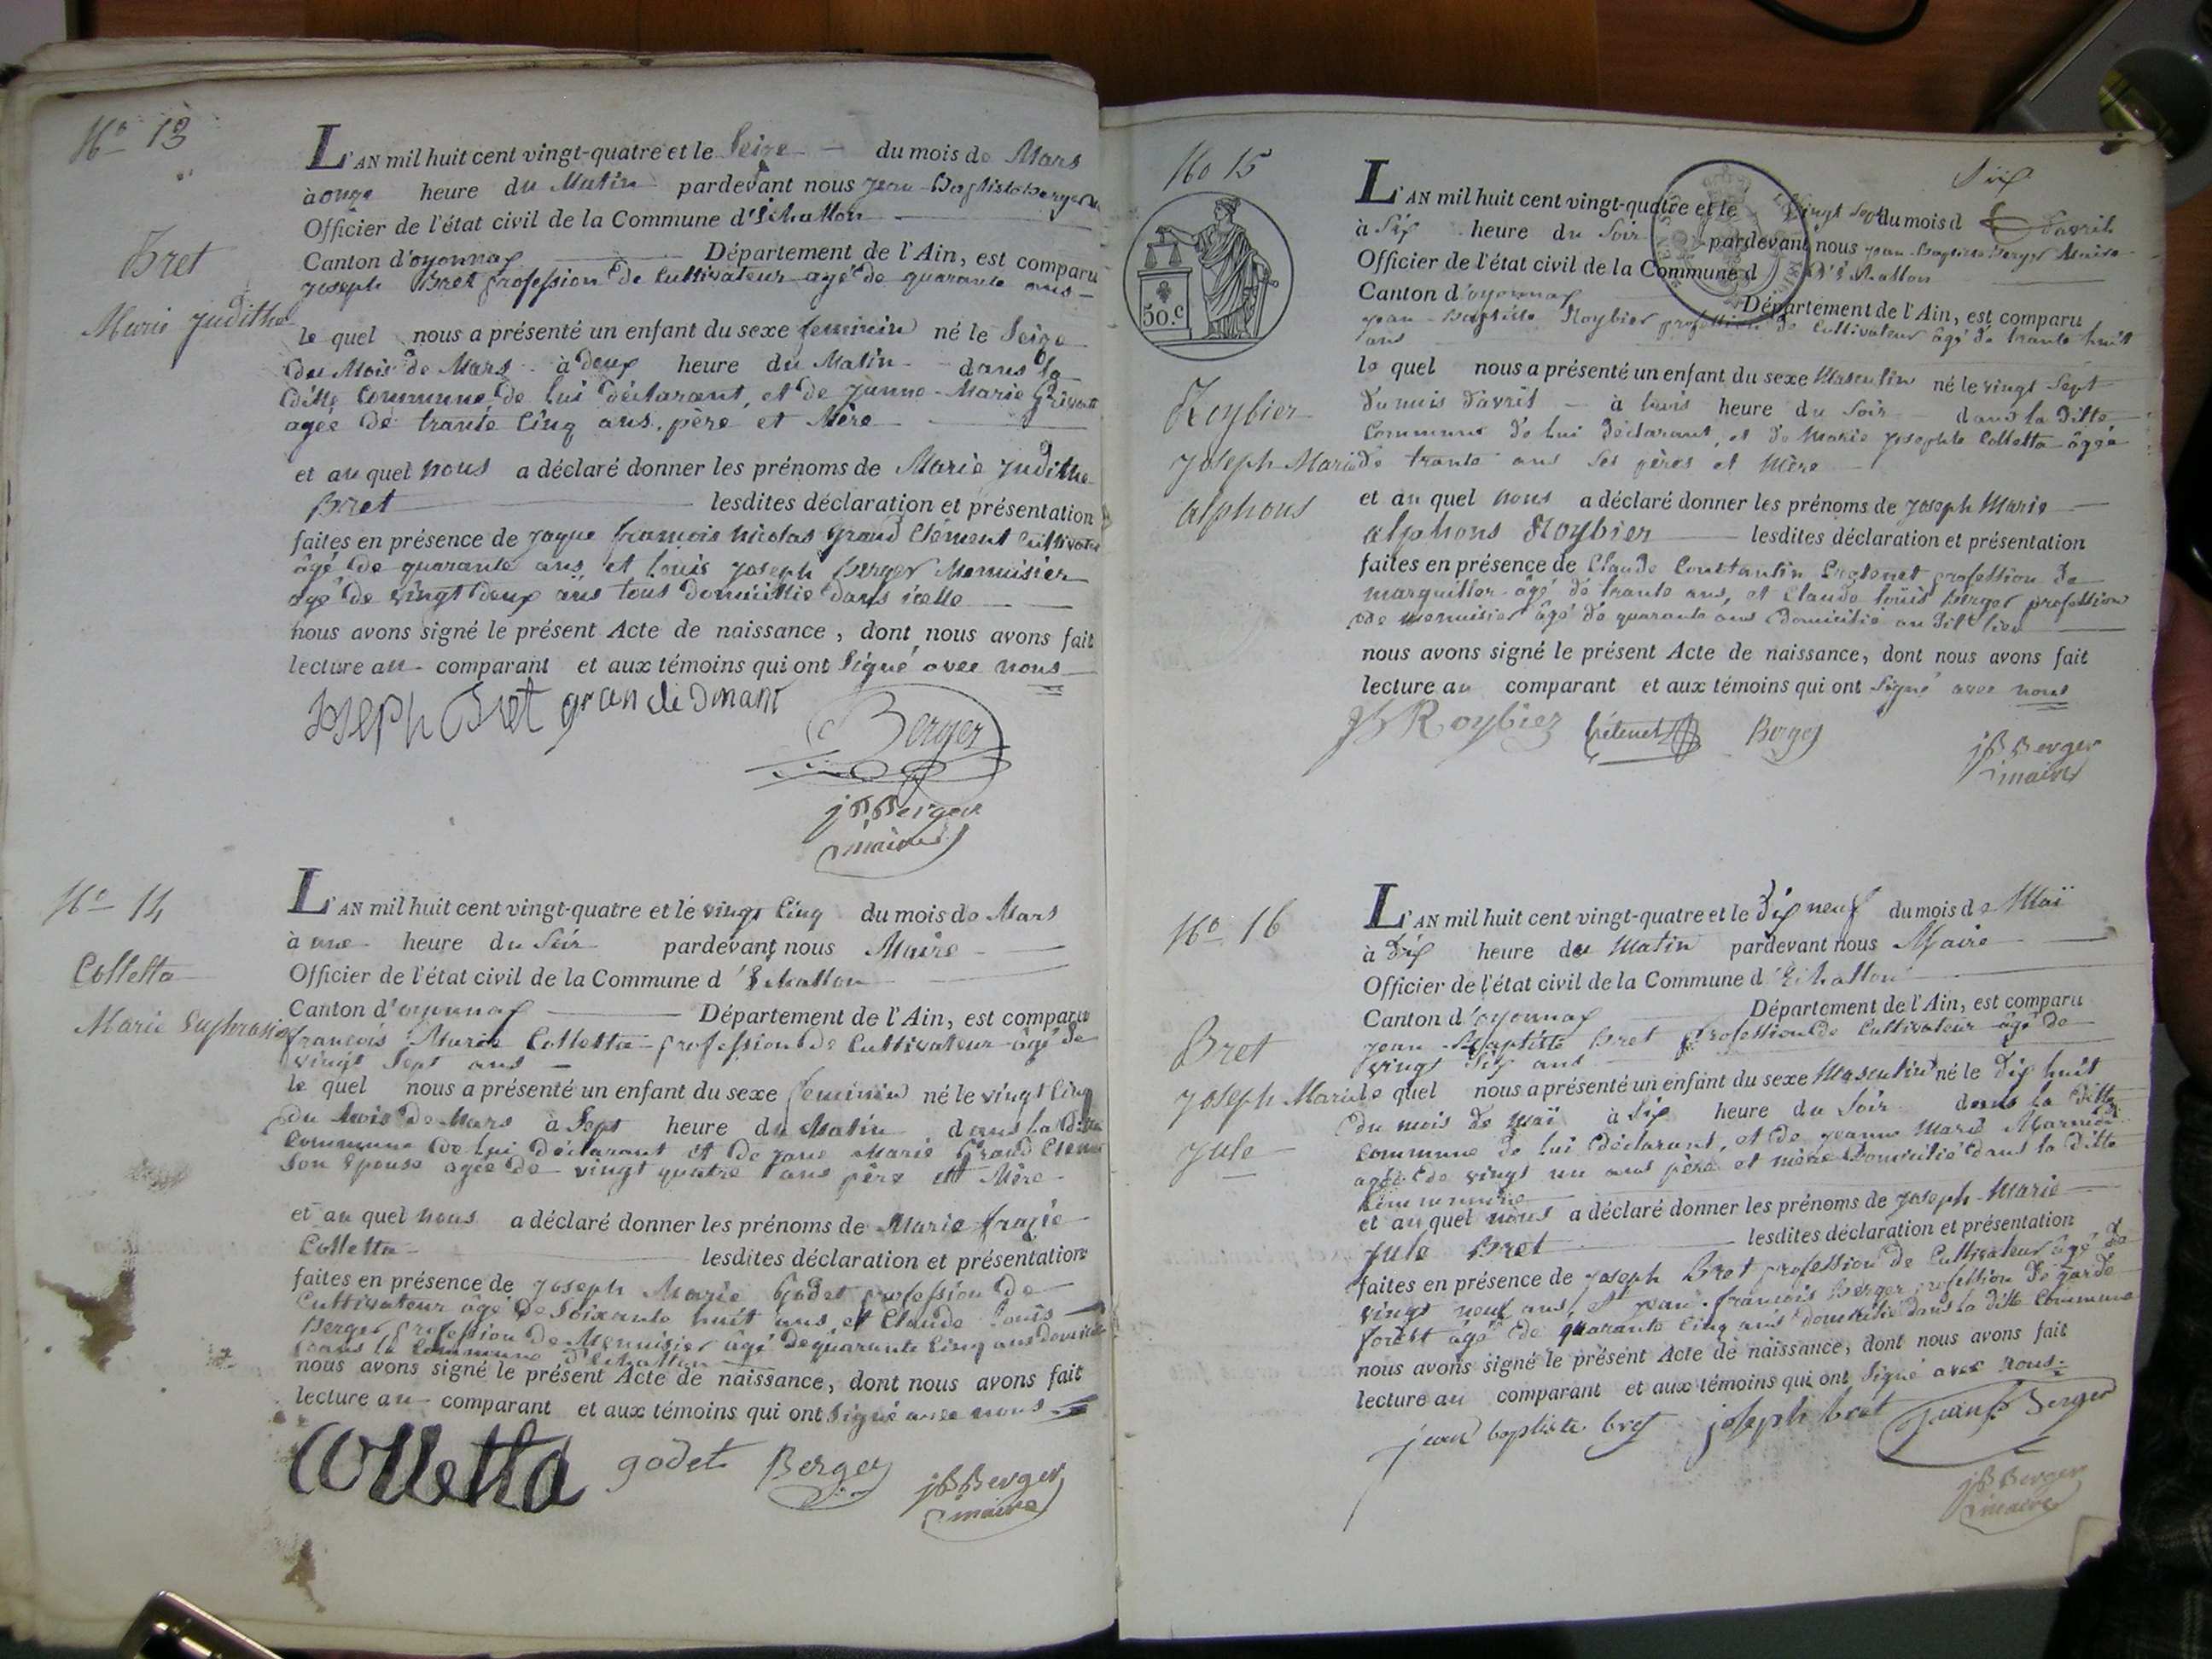 No 13
Bret
Marie Judithe
L'AN mil huit cent vingt-quatre et le Seize du mois de Mars
à onze heure du Matin pardevant nous Jean-Baptiste Berger
Officier de l'état civil de la Commune d'Echallon
Canton d'oyonnax Département de l'Ain, est comparu
Joseph Bret profession de Cultivateur agé de quarante ans
le quel nous a présenté un enfant du sexe feminin né le Seize
du Mois de Mars à deux heure du Matin dans la
ditte Commune de lui déclarant, et de Janne-Marie
agée de trante Cinq ans. père et Mère
et au quel nous a déclaré donner les prénoms de Marie Judithe
Bret lesdites déclaration et présentation
faites en présence de Jaque françois Nicolas Grand Clément Cultivateur
âgé de quarante ans et louis Joseph Berger Menuisier
agé de vingt deux ans tous domicillié dans icelle
nous avons signé le présent Acte de naissance, dont nous avons fait
lecture au comparant et aux témoins qui ont Signé avec nous
Joseph Bret
Berger
jB Berger
maire
No 14
Colletta
Marie Euphrasie
L'AN mil huit cent vingt-quatre et le vingt Cinq du mois de Mars
à une heure du Soir pardevant nous Maire
Officier de l'état civil de la Commune d'Echallon
Canton d'oyonnax Département de l'Ain, est comparu
françois Marie Colletta profession de Cultivateur âgé de
vingt Sept ans
le quel nous a présenté un enfant du sexe feminin né le vingt Cinq
du Mois de Mars à Sept heure du Matin dans la ditte
Commune de lui déclarant et de Jane Marie Grand Clement
Son Epouse agée de vingt quatre ans père et Mère
et au quel nous a déclaré donner les prénoms de Marie
Colletta lesdites déclaration et présentation
faites en présence de Joseph Marie Godet profession de
Cultivateur âgé de Soixante huit ans et Claude Louis
Berger profession de Menuisier âgé de quarante Cinq ans domicilié
dans la Commune d'Echallon
nous avons signé le présent Acte de naissance, dont nous avons fait
lecture au comparant et aux témoins qui ont Signé avec nous
Colletta godet Berger jB Berger
maire
Six
No 15
50.c
Roybier
Joseph Marie
alphons
L'AN mil huit cent vingt-quatre et le Vingt Sept du mois d'avril
à Six heure du Soir pardevant nous Jean-Baptiste Berger Maire
Officier de l'état civil de la Commune d'Echallon
Canton d'oyonnax Département de l'Ain, est comparu
Jean-Baptiste Roybier profession de Cultivateur âgé de trante huit
ans
le quel nous a présenté un enfant du sexe Masculin né le vingt Sept
du mois d'avril à trois heure du Soir dans la ditte
Commune de lui déclarant, et de Marie Josephte Colletta âgée
de trante ans Ses pères et Mère
et au quel nous a déclaré donner les prénoms de Joseph Marie
alphons Roybier lesdites déclaration et présentation
faites en présence de Claude Constantin profession de
marguiller âgé de trante ans, et Claude louis Berger profession
de menuisier âgé de quarante ans domicilié au dit lieu
nous avons signé le présent Acte de naissance, dont nous avons fait
lecture au comparant et aux témoins qui ont Signé avec nous
JB Roybier Berger jB Berger
maire
No 16
Bret
Joseph Marie
Jule
L'AN mil huit cent vingt-quatre et le Dix neuf du mois de Maï
à Dix heure du Matin pardevant nous Maire
Officier de l'état civil de la Commune d'Echallon
Canton d'oyonnax Département de l'Ain, est comparu
Jean-Baptiste Bret profession de Cultivateur âgé de
vingt Six ans
le quel nous a présenté un enfant du sexe Masculin né le Dix huit
du mois de Maï à Six heure du Soir dans la ditte
Commune de lui déclarant, et de Jeanne Marie
agée de vingt un ans père et mère Domicilié dans la ditte
Commune
et au quel nous a déclaré donner les prénoms de Joseph-Marie
Jule Bret lesdites déclaration et présentation
faites en présence de Joseph Bret profession de Cultivateur âgé de
vingt neuf ans, et Jean-françois Berger profession de garde
forêt âgé de quarante Cinq ans domicilié dans la ditte Commune
nous avons signé le présent Acte de naissance, dont nous avons fait
lecture au comparant et aux témoins qui ont Signé avec nous.
jean baptiste bret joseph bret Berger
jB Berger
maire